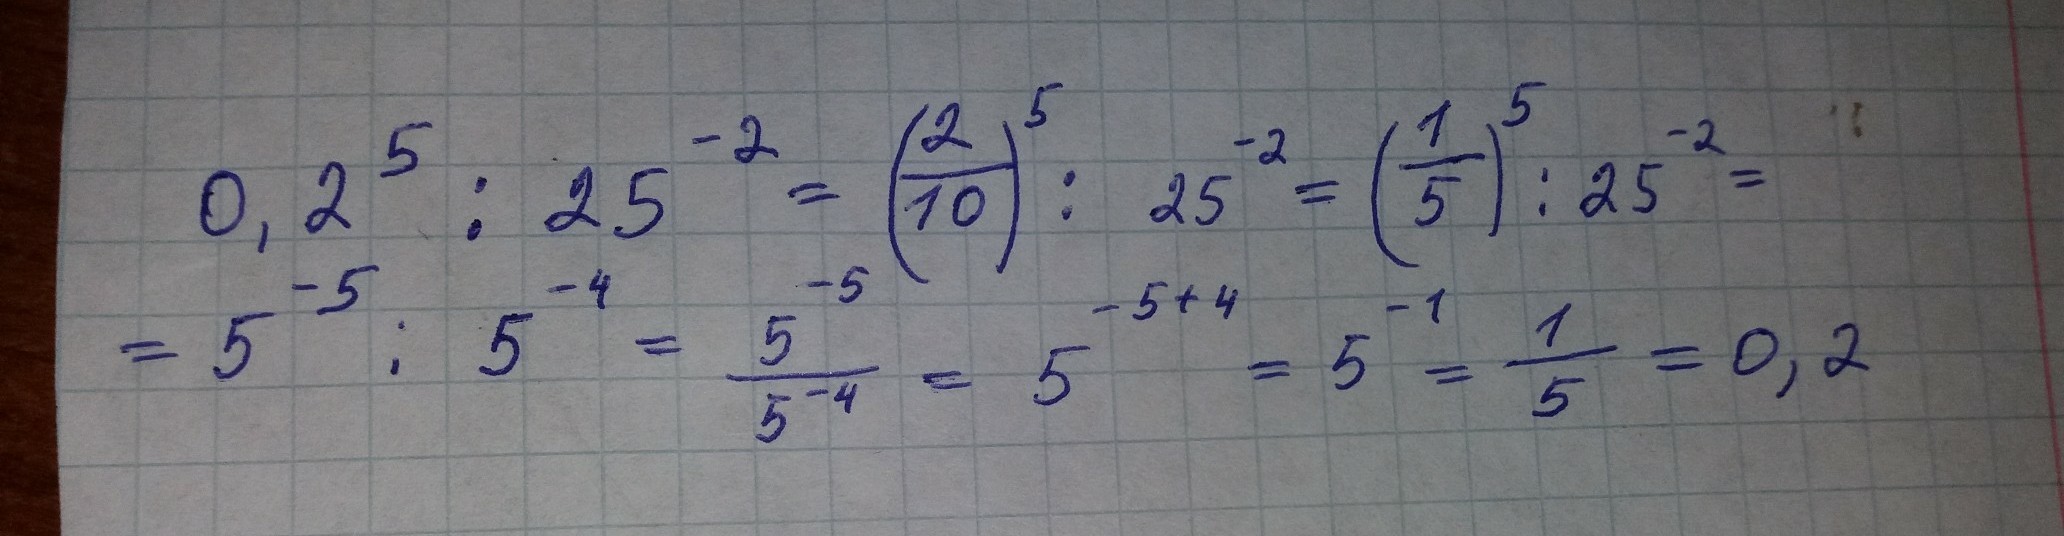 0,2⁵ : 25⁻² = (2/10)⁵ : 25⁻² = (1/5)⁵ : 25⁻² =
= 5⁻⁵ : 5⁻⁴ = 5⁻⁵/5⁻⁴ = 5⁻⁵⁺⁴ = 5⁻¹ = 1/5 = 0,2